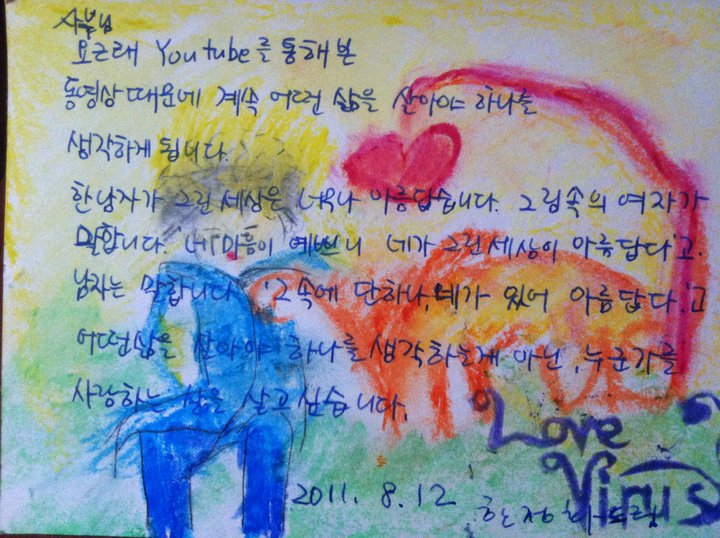 사부님
요근래 Youtube를 통해본
동영상때문에 계속 어떤 삶을 살아야 하나를
생각하게 됩니다.
한남자가 그린세상은 너무나 아름답습니다. 그림속의 여자가
말합니다. '네 마음이 예쁘니 네가 그린세상이 아름답다'고.
남자는 말합니다. '그속에 단하나, 네가 있어 아름답다.'고
어떤삶을 살아야 하나를 생각하는게 아닌, 누군가를
사랑하는 삶을 살고 싶습니다.
Love
Virus
2011. 8. 12
드림